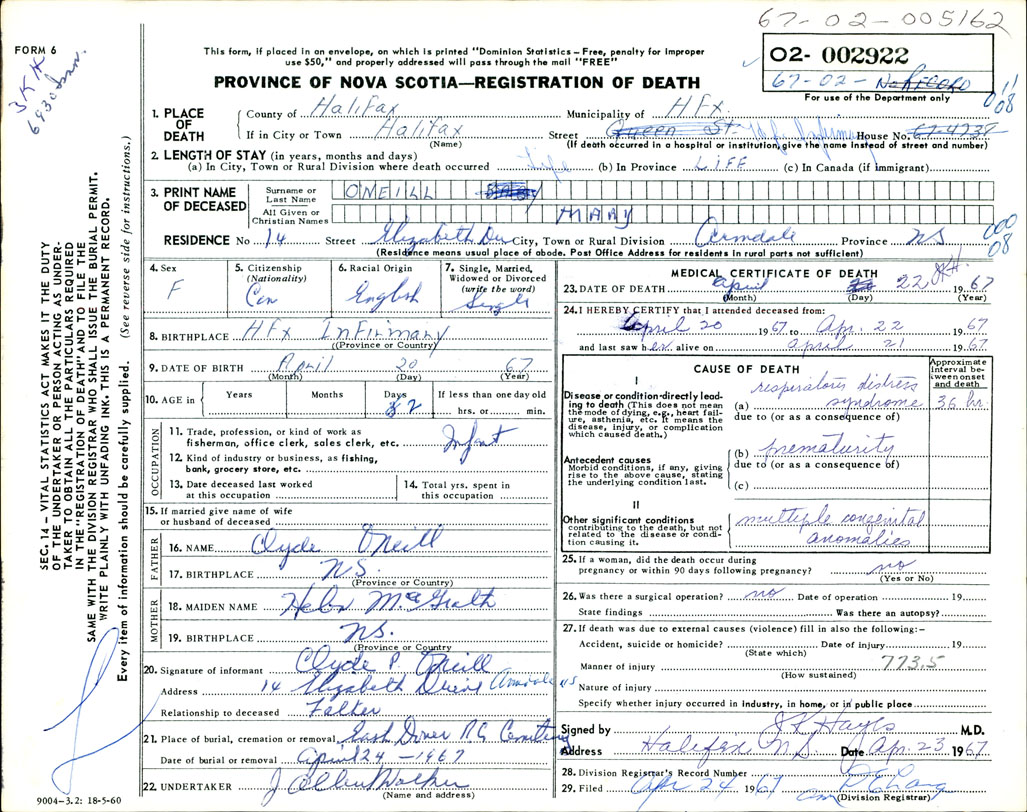 67-02-005162
FORM 6
This form, if placed in an envelope, on which is printed "Dominion Statistics – Free, penalty for improper
use $50," and properly addressed will pass through the mail "FREE"
02- 002922
67-02-
For use of the Department only
PROVINCE OF NOVA SCOTIA—REGISTRATION OF DEATH
008
1. PLACE OF DEATH
County of Halifax Municipality of HFx.
If in City or Town Halifax Street Queen St. House No.
(Name) (If death occurred in a hospital or institution, give the name instead of street and number)
2. LENGTH OF STAY (in years, months and days)
(a) In City, Town or Rural Division where death occurred Life (b) In Province LIFE (c) In Canada (if immigrant)
3. PRINT NAME OF DECEASED
Surname or Last Name ONEILL
All Given or Christian Names MARY
RESIDENCE No 14 Street Elizabeth Dr City, Town or Rural Division Armdale Province NS
(Residence means usual place of abode. Post Office Address for residents in rural parts not sufficient)
000
08
SEC. 14 – VITAL STATISTICS ACT MAKES IT THE DUTY
OF THE UNDERTAKER OR PERSON ACTING AS UNDER-
TAKER TO OBTAIN ALL THE PARTICULARS REQUIRED
IN THE "REGISTRATION OF DEATH" AND TO FILE THE
SAME WITH THE DIVISION REGISTRAR WHO SHALL ISSUE THE BURIAL PERMIT.
WRITE PLAINLY WITH UNFADING INK. THIS IS A PERMANENT RECORD.
Every item of information should be carefully supplied. (See reverse side for instructions.)
4. Sex F
5. Citizenship (Nationality) Can
6. Racial Origin English
7. Single, Married, Widowed or Divorced (write the word) Single
8. BIRTHPLACE HFx INFIRMARY
(Province or Country)
9. DATE OF BIRTH April 20 67
(Month) (Day) (Year)
10. AGE in Years Months Days 2 If less than one day old
hrs. or min.
OCCUPATION
11. Trade, profession, or kind of work as
fisherman, office clerk, sales clerk, etc. Infant
12. Kind of industry or business, as fishing,
bank, grocery store, etc.
13. Date deceased last worked
at this occupation
14. Total yrs. spent in
this occupation
15. If married give name of wife
or husband of deceased
FATHER
16. NAME Clyde O'neill
17. BIRTHPLACE N.S.
(Province or Country)
MOTHER
18. MAIDEN NAME Helen McGrath
19. BIRTHPLACE NS.
(Province or Country)
20. Signature of informant Clyde P. O'Neill
Address 14 Elizabeth Drive Armdale NS
Relationship to deceased Father
21. Place of burial, cremation or removal RC Cemetery
Date of burial or removal April 24 - 1967
22. UNDERTAKER J Allen Walker
(Name and address)
9004–3.2: 18-5-60
MEDICAL CERTIFICATE OF DEATH
23. DATE OF DEATH April 22 1967
(Month) (Day) (Year)
24. I HEREBY CERTIFY that I attended deceased from:
April 20 1967 to Apr. 22 1967
and last saw her alive on April 21 1967
CAUSE OF DEATH
Approximate interval between onset and death
I
Disease or condition directly lead-
ing to death (This does not mean
the mode of dying, e.g., heart fail-
ure, asthenia, etc. It means the
disease, injury, or complication
which caused death.)
(a) respiratory distress
syndrome 36 hr.
due to (or as a consequence of)
Antecedent causes
Morbid conditions, if any, giving
rise to the above cause, stating
the underlying condition last.
(b) prematurity
due to (or as a consequence of)
(c)
II
Other significant conditions
contributing to the death, but not
related to the disease or condi-
tion causing it.
multiple congenital
anomalies
25. If a woman, did the death occur during
pregnancy or within 90 days following pregnancy? no
(Yes or No)
26. Was there a surgical operation? no Date of operation 19
State findings Was there an autopsy?
27. If death was due to external causes (violence) fill in also the following:–
Accident, suicide or homicide? Date of injury 19
(State which)
Manner of injury 773.5
(How sustained)
Nature of injury
Specify whether injury occurred in industry, in home, or in public place
Signed by Hayes M.D.
Address Halifax, N.S. Date Apr. 23 1967
28. Division Registrar's Record Number
29. Filed Apr 24 1967
(Division Registrar)